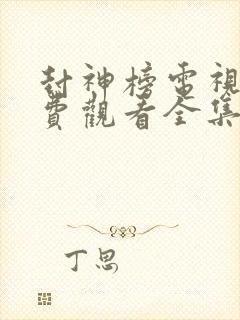 封神榜電視
費觀看全集
丁思